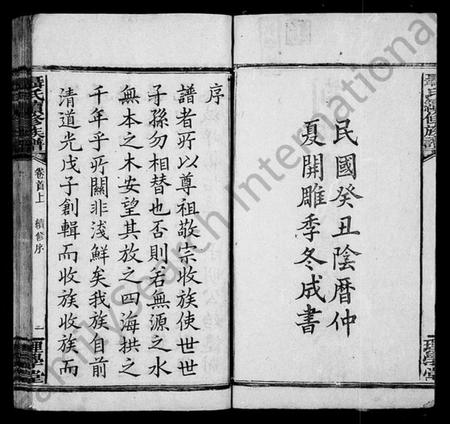 民國癸丑陰曆仲
夏開雕季冬成書
序
譜者所以尊祖敬宗收族使世世
子孫勿相替也否則若無源之水
無本之木安望其放之四海拱之
千年乎所關非淺鮮矣我族自前
清道光戊子創輯而收族收族而
氏續修族譜
卷首上
續修序
一
理學堂
FamilySearch International